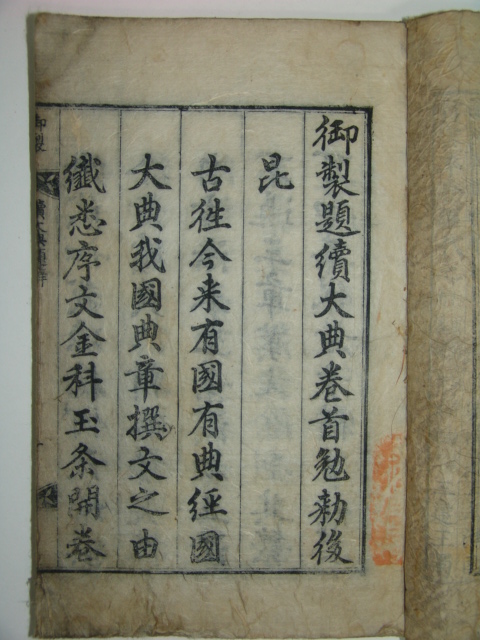 御製題續大典卷首勉勑後
昆
古徃今来有國有典經國
大典我國典章撰文之由
纖悉序文金科玉条開卷
御製
續大典題